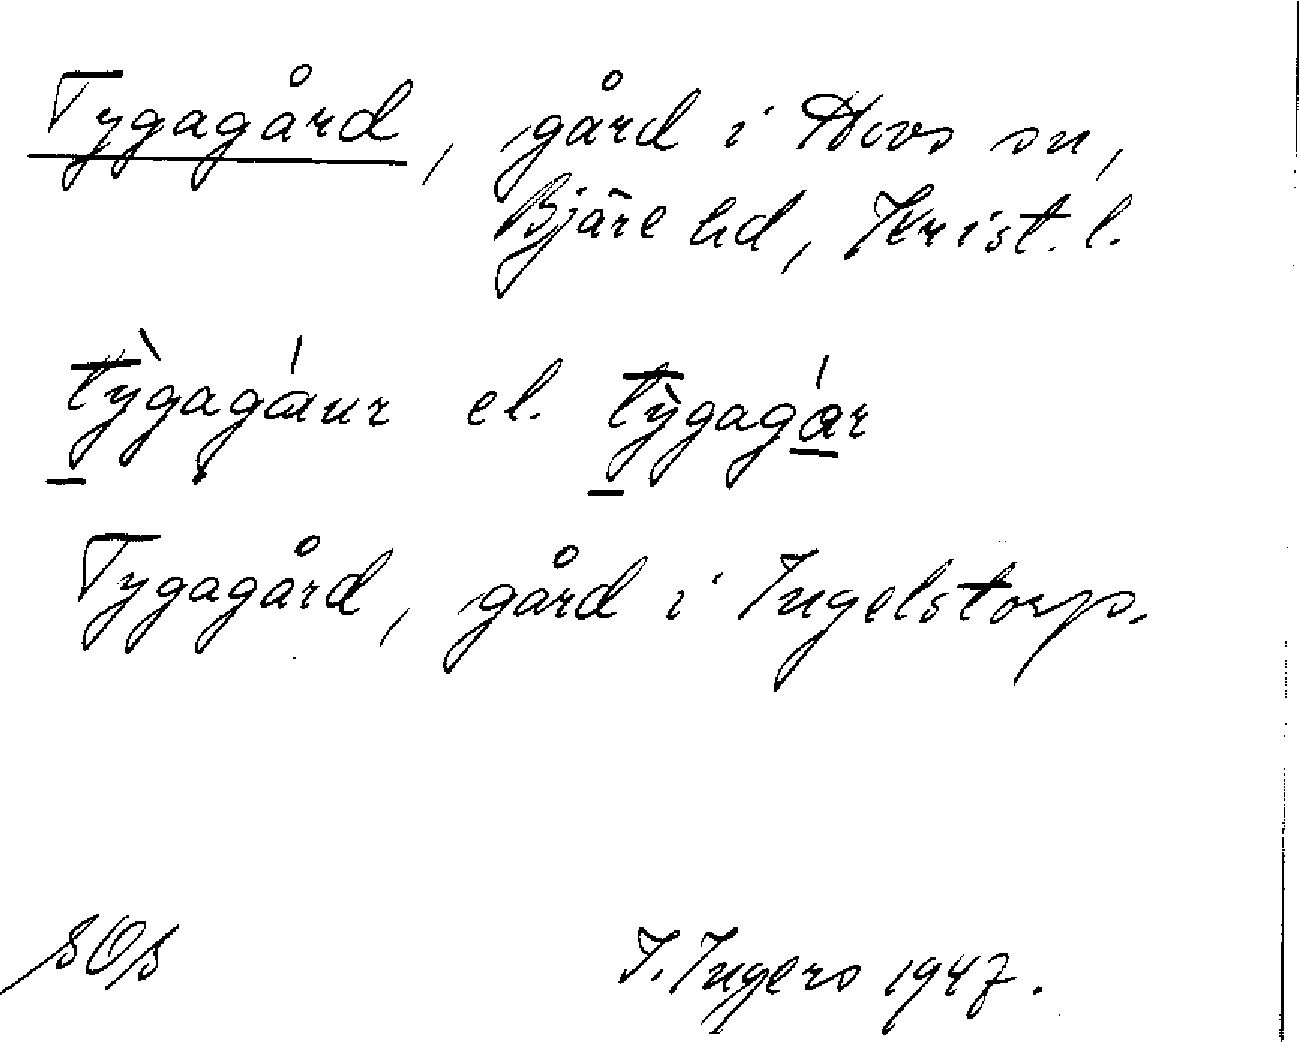 Tygagård, gård i Hovs sn,
Bjäre hd, Krist. l.
tỳgagáur el. tỳgagár
Tygagård, gård i Ingelstorp.
I. Ingers 1947.